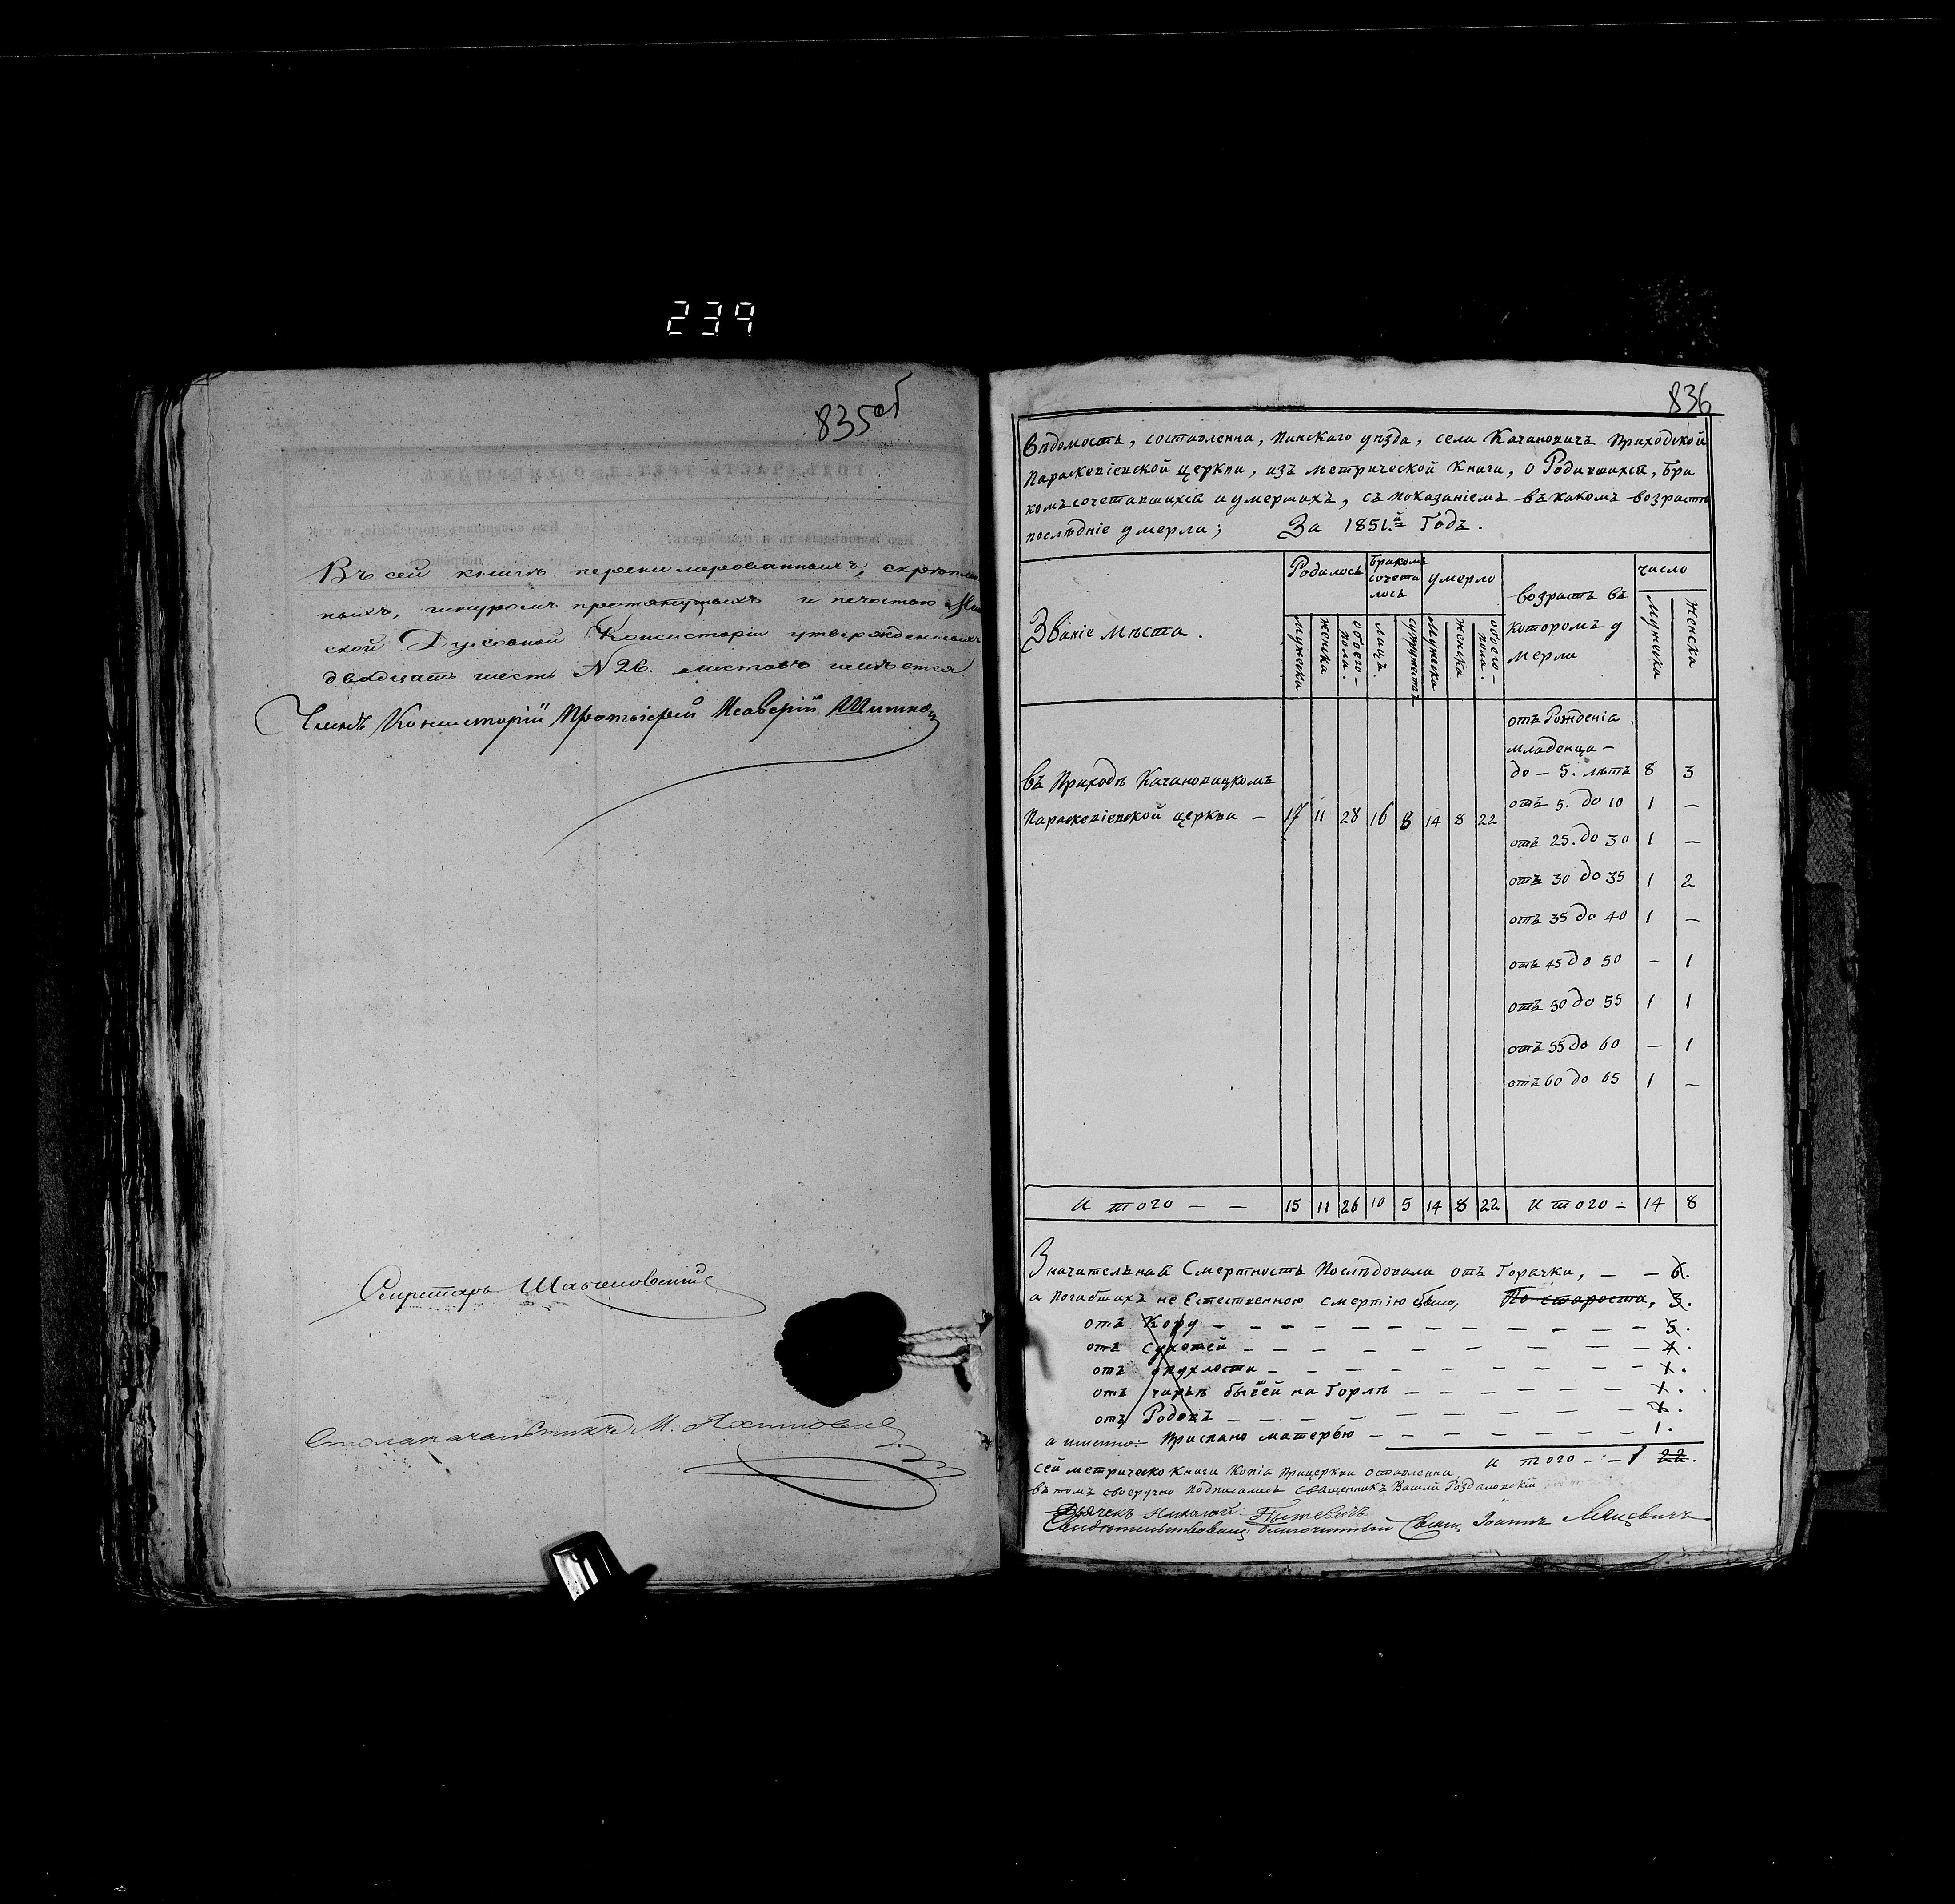 239
835об
Въ сей книгѣ перенумерованныхъ, скрѣплен
ныхъ, шнуромъ протянутыхъ и печатью Мин
ской Духовной Консисторіи утвержденныхъ
двадцать шесть N 26. листовъ имѣется
Членъ Консисторіи Протоіерей
Секретарь
Столоначальникъ М.
836
Вѣдомость, составленна, Пинскаго уѣзда, села Качановичъ Приходской
Параскевіевской церкви, изъ метрической Книги, о Родившихся, бра
комъ сочетавшихся и умершихъ, съ показаніемъ въ какомъ возрастѣ
послѣдніе умерли; За 1851.й Годъ.
Званіе мѣста.
Родилось
бракомъ сочета лось
умерло
возрастъ въ которомъ у мерли
число
мужеска
женска
обоего – пола.
лицъ.
супружествъ
мужеска
женска
обоего – пола.
мужеска
женска
отъ Рожденія
младенца –
до – 5. лѣтъ 8 3
въ Приходѣ Качановицкомъ
Параскевіевской церкви – 17 11 28 16 8 14 8 22
отъ 5. до 10 1 –
отъ 25. до 30 1 –
отъ 30 до 35 1 2
отъ 35 до 40 1 –
отъ 45 до 50 – 1
отъ 50 до 55 1 1
отъ 55 до 60 – 1
отъ 60 до 65 1 –
И того – – 15 11 26 10 5 14 8 22 И того – 14 8
Значительная Смертность Послѣдовала отъ Горячки, – – 6.
а погибшихъ не Естественною смертію было, По старости, 3.
отъ Кору – – – 5.
отъ сухотей – – –
отъ опухлости – – –
отъ на Горлѣ – – –
отъ Родовъ – – –
а именно: – Приспано матерью – – – 1.
и того – – 1 22.
сей метрическо Книги Копія Прицеркви оставленна,
въ томъ своеручно Подписались священникъ Василій
Дьячекъ Николай
Свидѣтельствовалъ Благочинный Свящ Іоаннъ